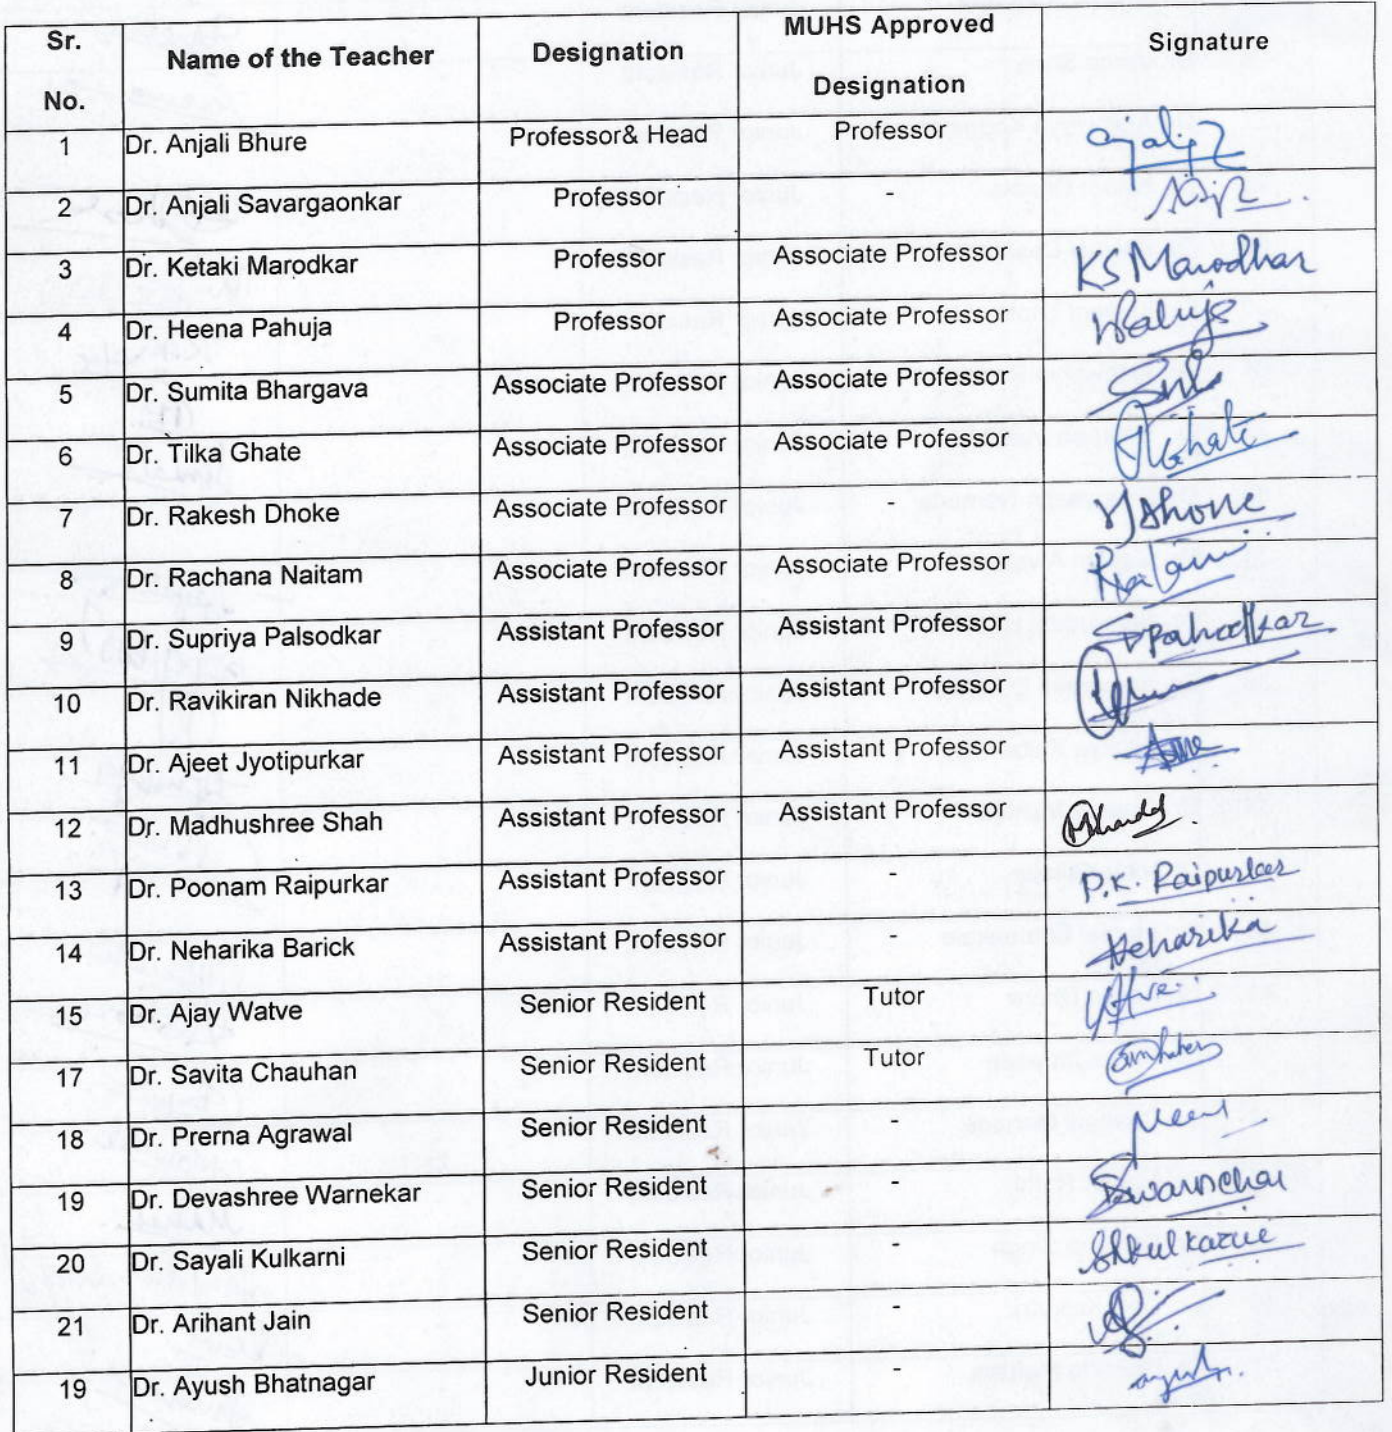 Sr. No. Name of the Teacher Designation MUHS Approved Designation Signature
1 Dr. Anjali Bhure Professor& Head Professor
2 Dr. Anjali Savargaonkar Professor -
3 Dr. Ketaki Marodkar Professor Associate Professor KS Marodkar
4 Dr. Heena Pahuja Professor Associate Professor
5 Dr. Sumita Bhargava Associate Professor Associate Professor
6 Dr. Tilka Ghate Associate Professor Associate Professor TGhate
7 Dr. Rakesh Dhoke Associate Professor -
8 Dr. Rachana Naitam Associate Professor Associate Professor
9 Dr. Supriya Palsodkar Assistant Professor Assistant Professor SPalsodkar
10 Dr. Ravikiran Nikhade Assistant Professor Assistant Professor
11 Dr. Ajeet Jyotipurkar Assistant Professor Assistant Professor
12 Dr. Madhushree Shah Assistant Professor Assistant Professor
13 Dr. Poonam Raipurkar Assistant Professor - P.K. Raipurkar
14 Dr. Neharika Barick Assistant Professor - Neharika
15 Dr. Ajay Watve Senior Resident Tutor
17 Dr. Savita Chauhan Senior Resident Tutor
18 Dr. Prerna Agrawal Senior Resident -
19 Dr. Devashree Warnekar Senior Resident -
20 Dr. Sayali Kulkarni Senior Resident -
21 Dr. Arihant Jain Senior Resident -
19 Dr. Ayush Bhatnagar Junior Resident -